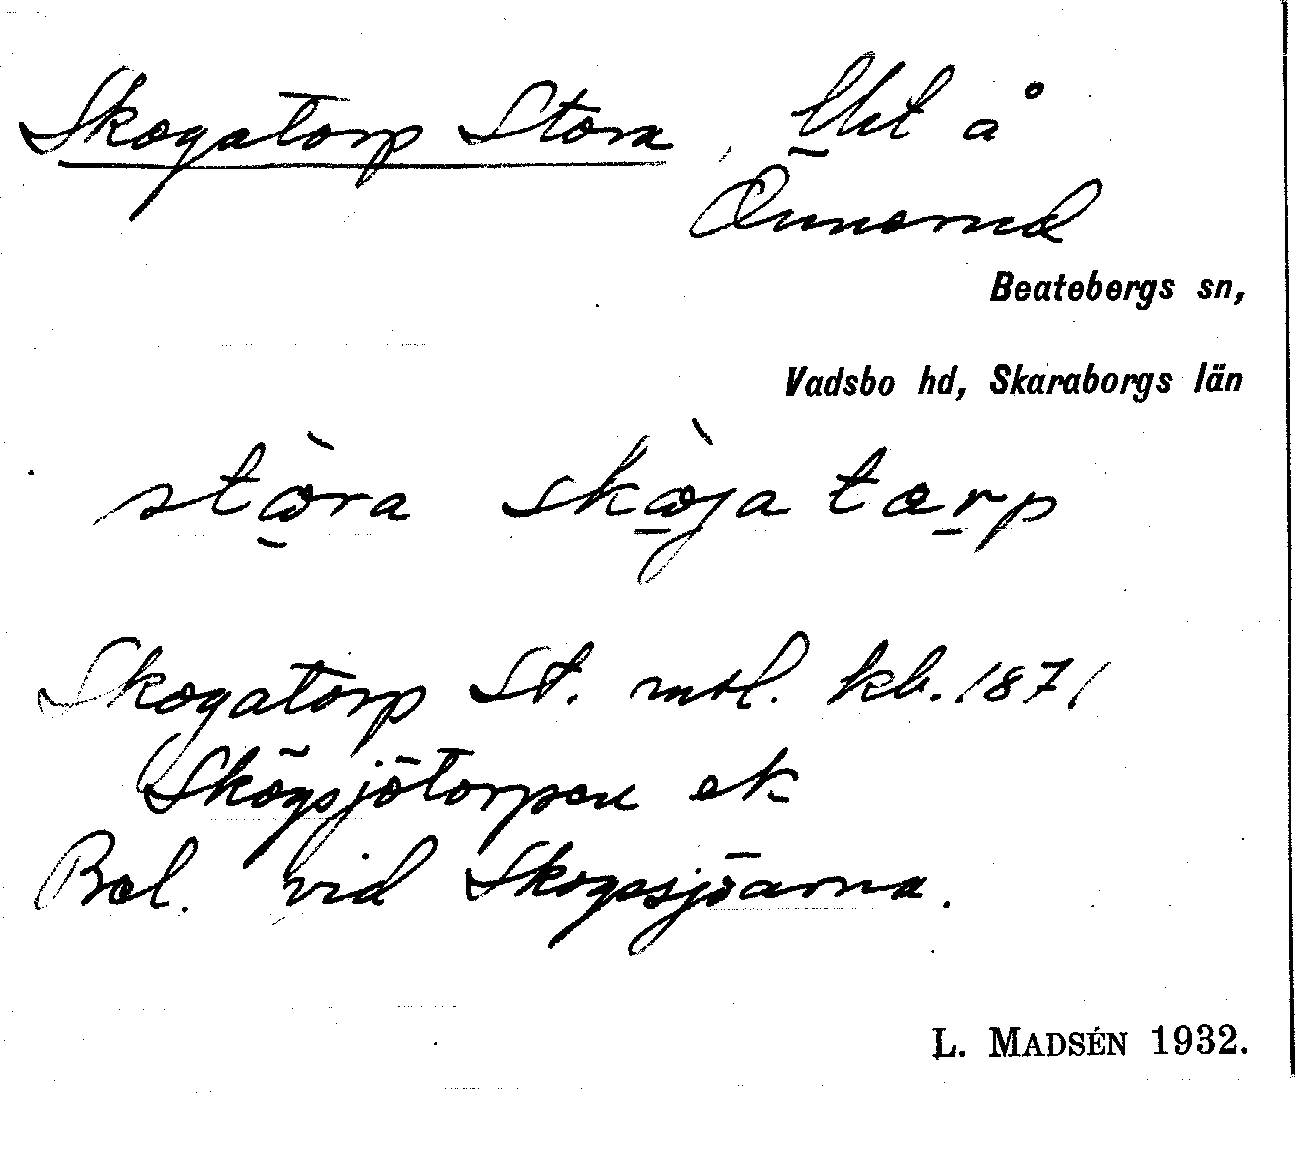 Skogatorp Stora, lht å
Önnerud
Beatebergs sn,
Vadsbo hd, Skaraborgs län
stⱥ̀ra skæ̀ja tærp
Skogatorp St. mtl. kb. 1871
Skögsjötorpen ek
Bel. vid Skogssjöarna.
L. MADSÉN 1932.